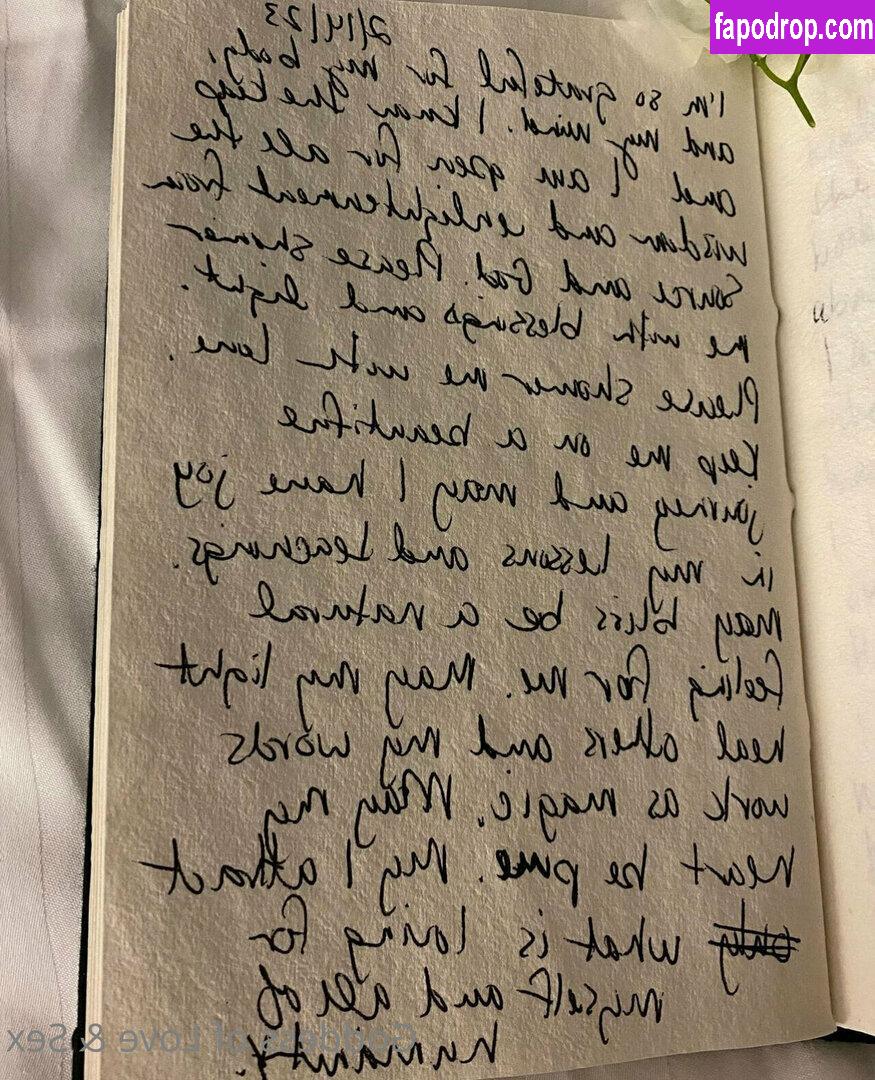 fapodrop.com
2/14/23
I'm so grateful for my body,
and my mind. I know the
and I am open for all the
wisdom and enlightenment from
source and God. Please shower
me with blessings and light.
Please shower me with love.
Keep me on a beautiful
journey and may I have joy
in my lessons and teachings.
May bliss be a natural
feeling for me. May my light
heal others and my words
work as magic. May my
heart be pure. My I attract
only what is loving for
myself and all of
humanity.
Goddess of Love & Sex